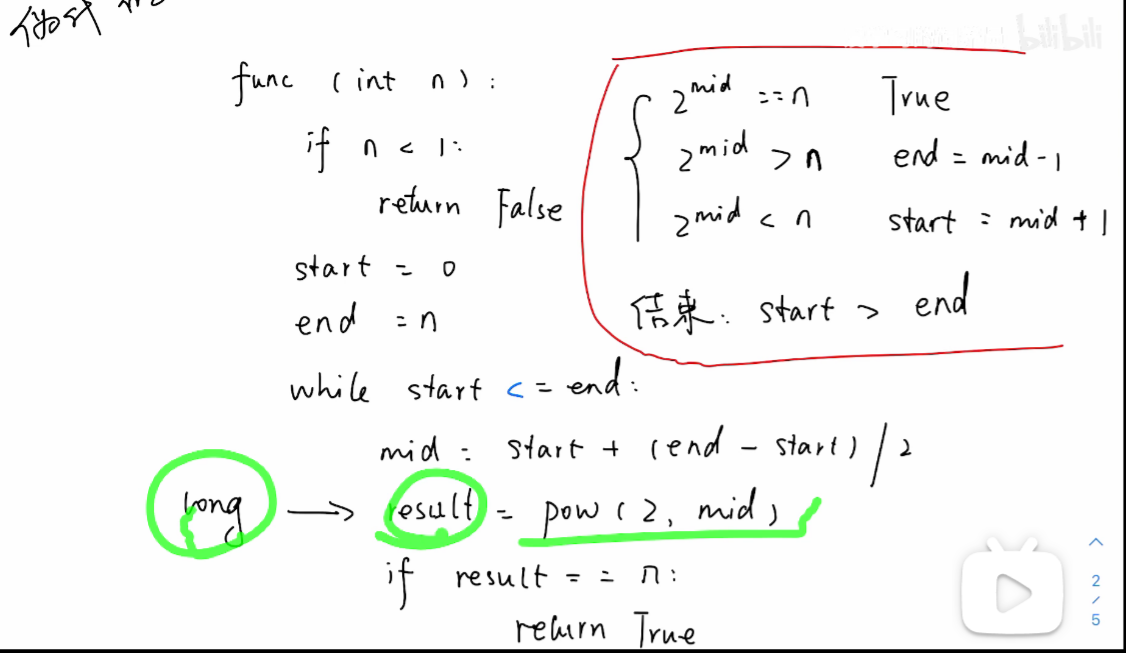 func (int n):
if n < 1:
return False
start = 0
end = n
while start <= end:
mid = start + (end - start) / 2
long → result = pow(2, mid)
if result == n:
return True
2^mid == n True
2^mid > n end = mid - 1
2^mid < n start = mid + 1
结束: start > end
bilibili
2
/
5